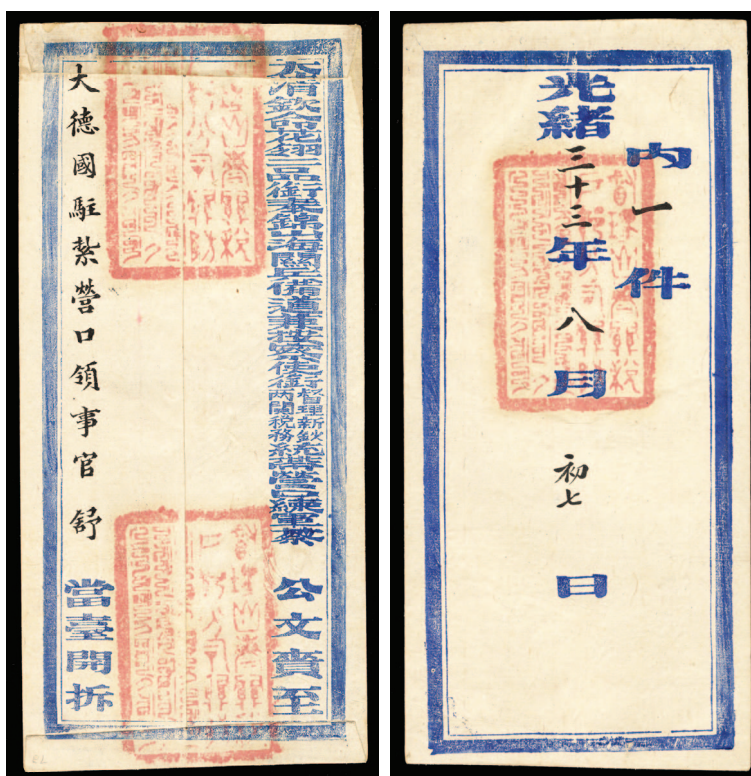 大清欽命花翎二品銜奉錦山海關兵備道兼按察使銜督理新鈔两關稅務統帶營口練軍蔡 公文賫至
大德國駐紮營口領事官舒 當臺開拆
内一件
光緒三十三年八月初七日